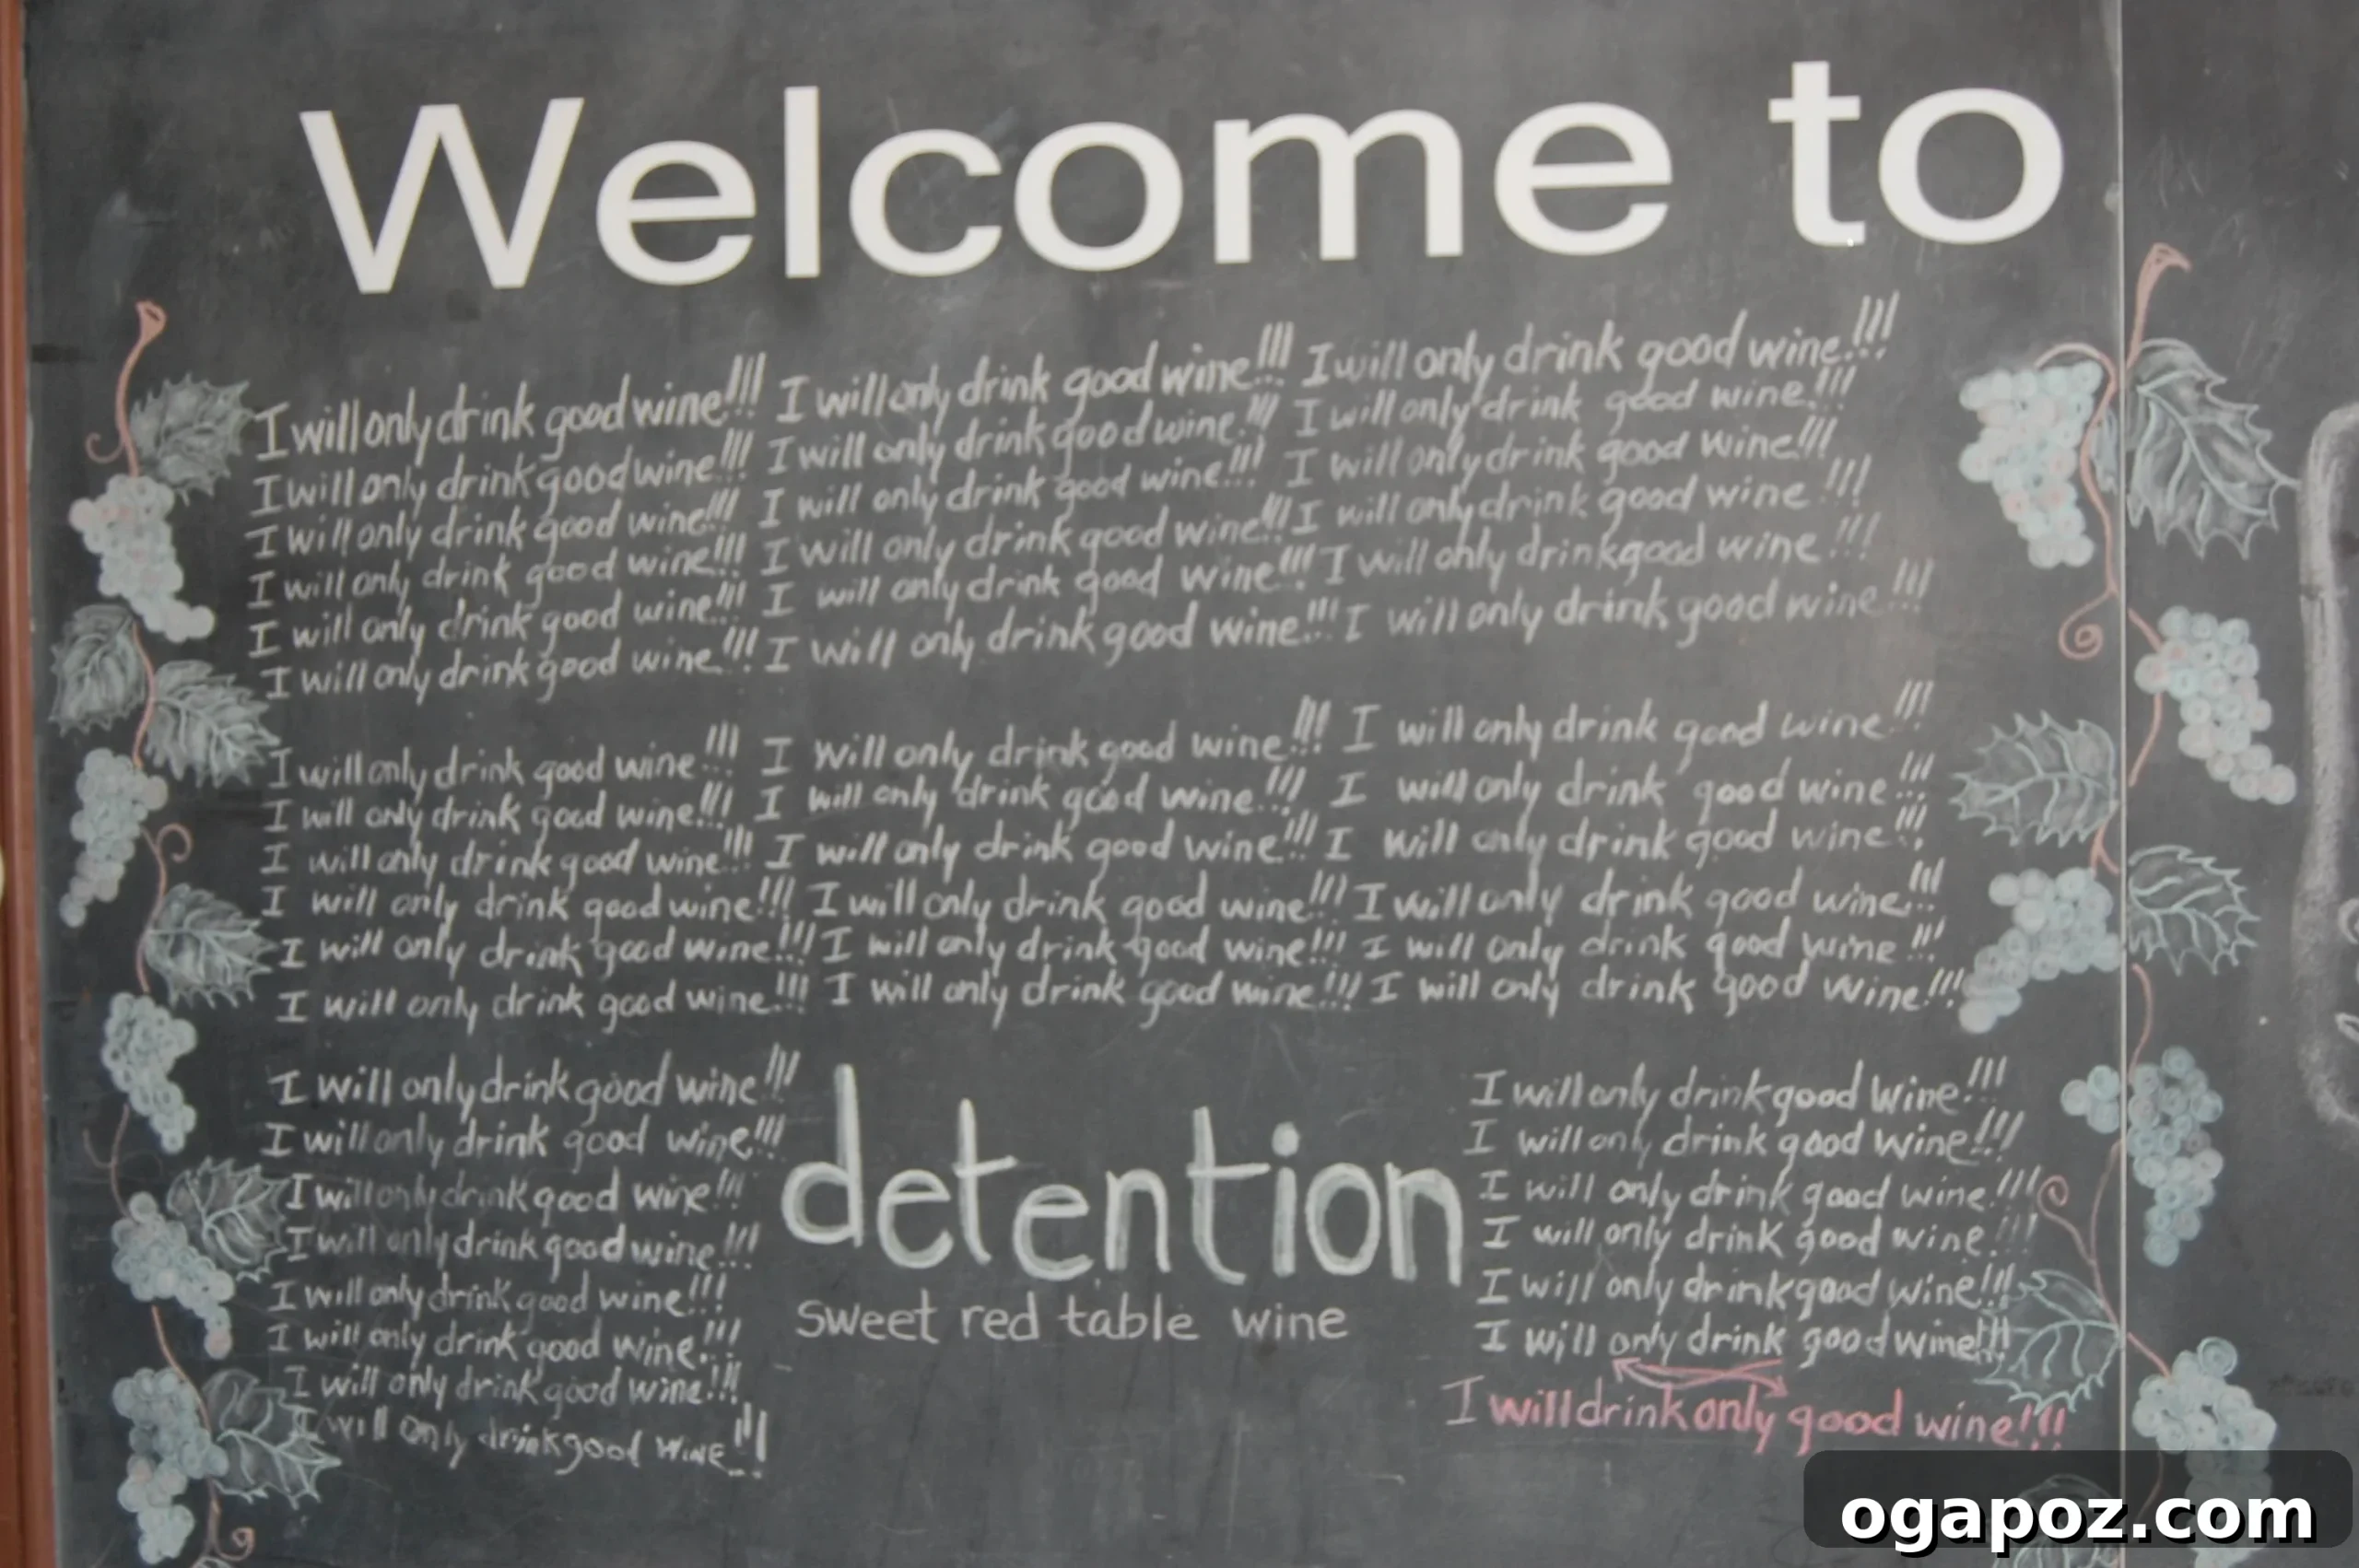 Welcome to
I will only drink good wine!!! I will only drink good wine!!! I will only drink good wine!!!
I will only drink good wine!!! I will only drink good wine!!! I will only drink good wine!!!
I will only drink good wine!!! I will only drink good wine!!! I will only drink good wine!!!
I will only drink good wine!!! I will only drink good wine!!! I will only drink good wine!!!
I will only drink good wine!!! I will only drink good wine!!! I will only drink good wine!!!
I will only drink good wine!!! I will only drink good wine!!! I will only drink good wine!!!
I will only drink good wine!!! I will only drink good wine!!! I will only drink good wine!!!
I will only drink good wine!!! I will only drink good wine!!! I will only drink good wine!!!
I will only drink good wine!!! I will only drink good wine!!! I will only drink good wine!!!
I will only drink good wine!!! I will only drink good wine!!! I will only drink good wine!!!
I will only drink good wine!!! I will only drink good wine!!! I will only drink good wine!!!
I will only drink good wine!!! I will only drink good wine!!! I will only drink good wine!!!
I will only drink good wine!!!
I will only drink good wine!!!
I will only drink good wine!!!
I will only drink good wine!!!
I will only drink good wine!!!
I will only drink good wine!!!
I will only drink good wine!!!
I will only drink good wine!!!
detention
sweet red table wine
I will only drink good wine!!!
I will only drink good wine!!!
I will only drink good wine!!!
I will only drink good wine!!!
I will only drink good wine!!!
I will only drink good wine!!!
I will drink only good wine!!!
ogapoz.com